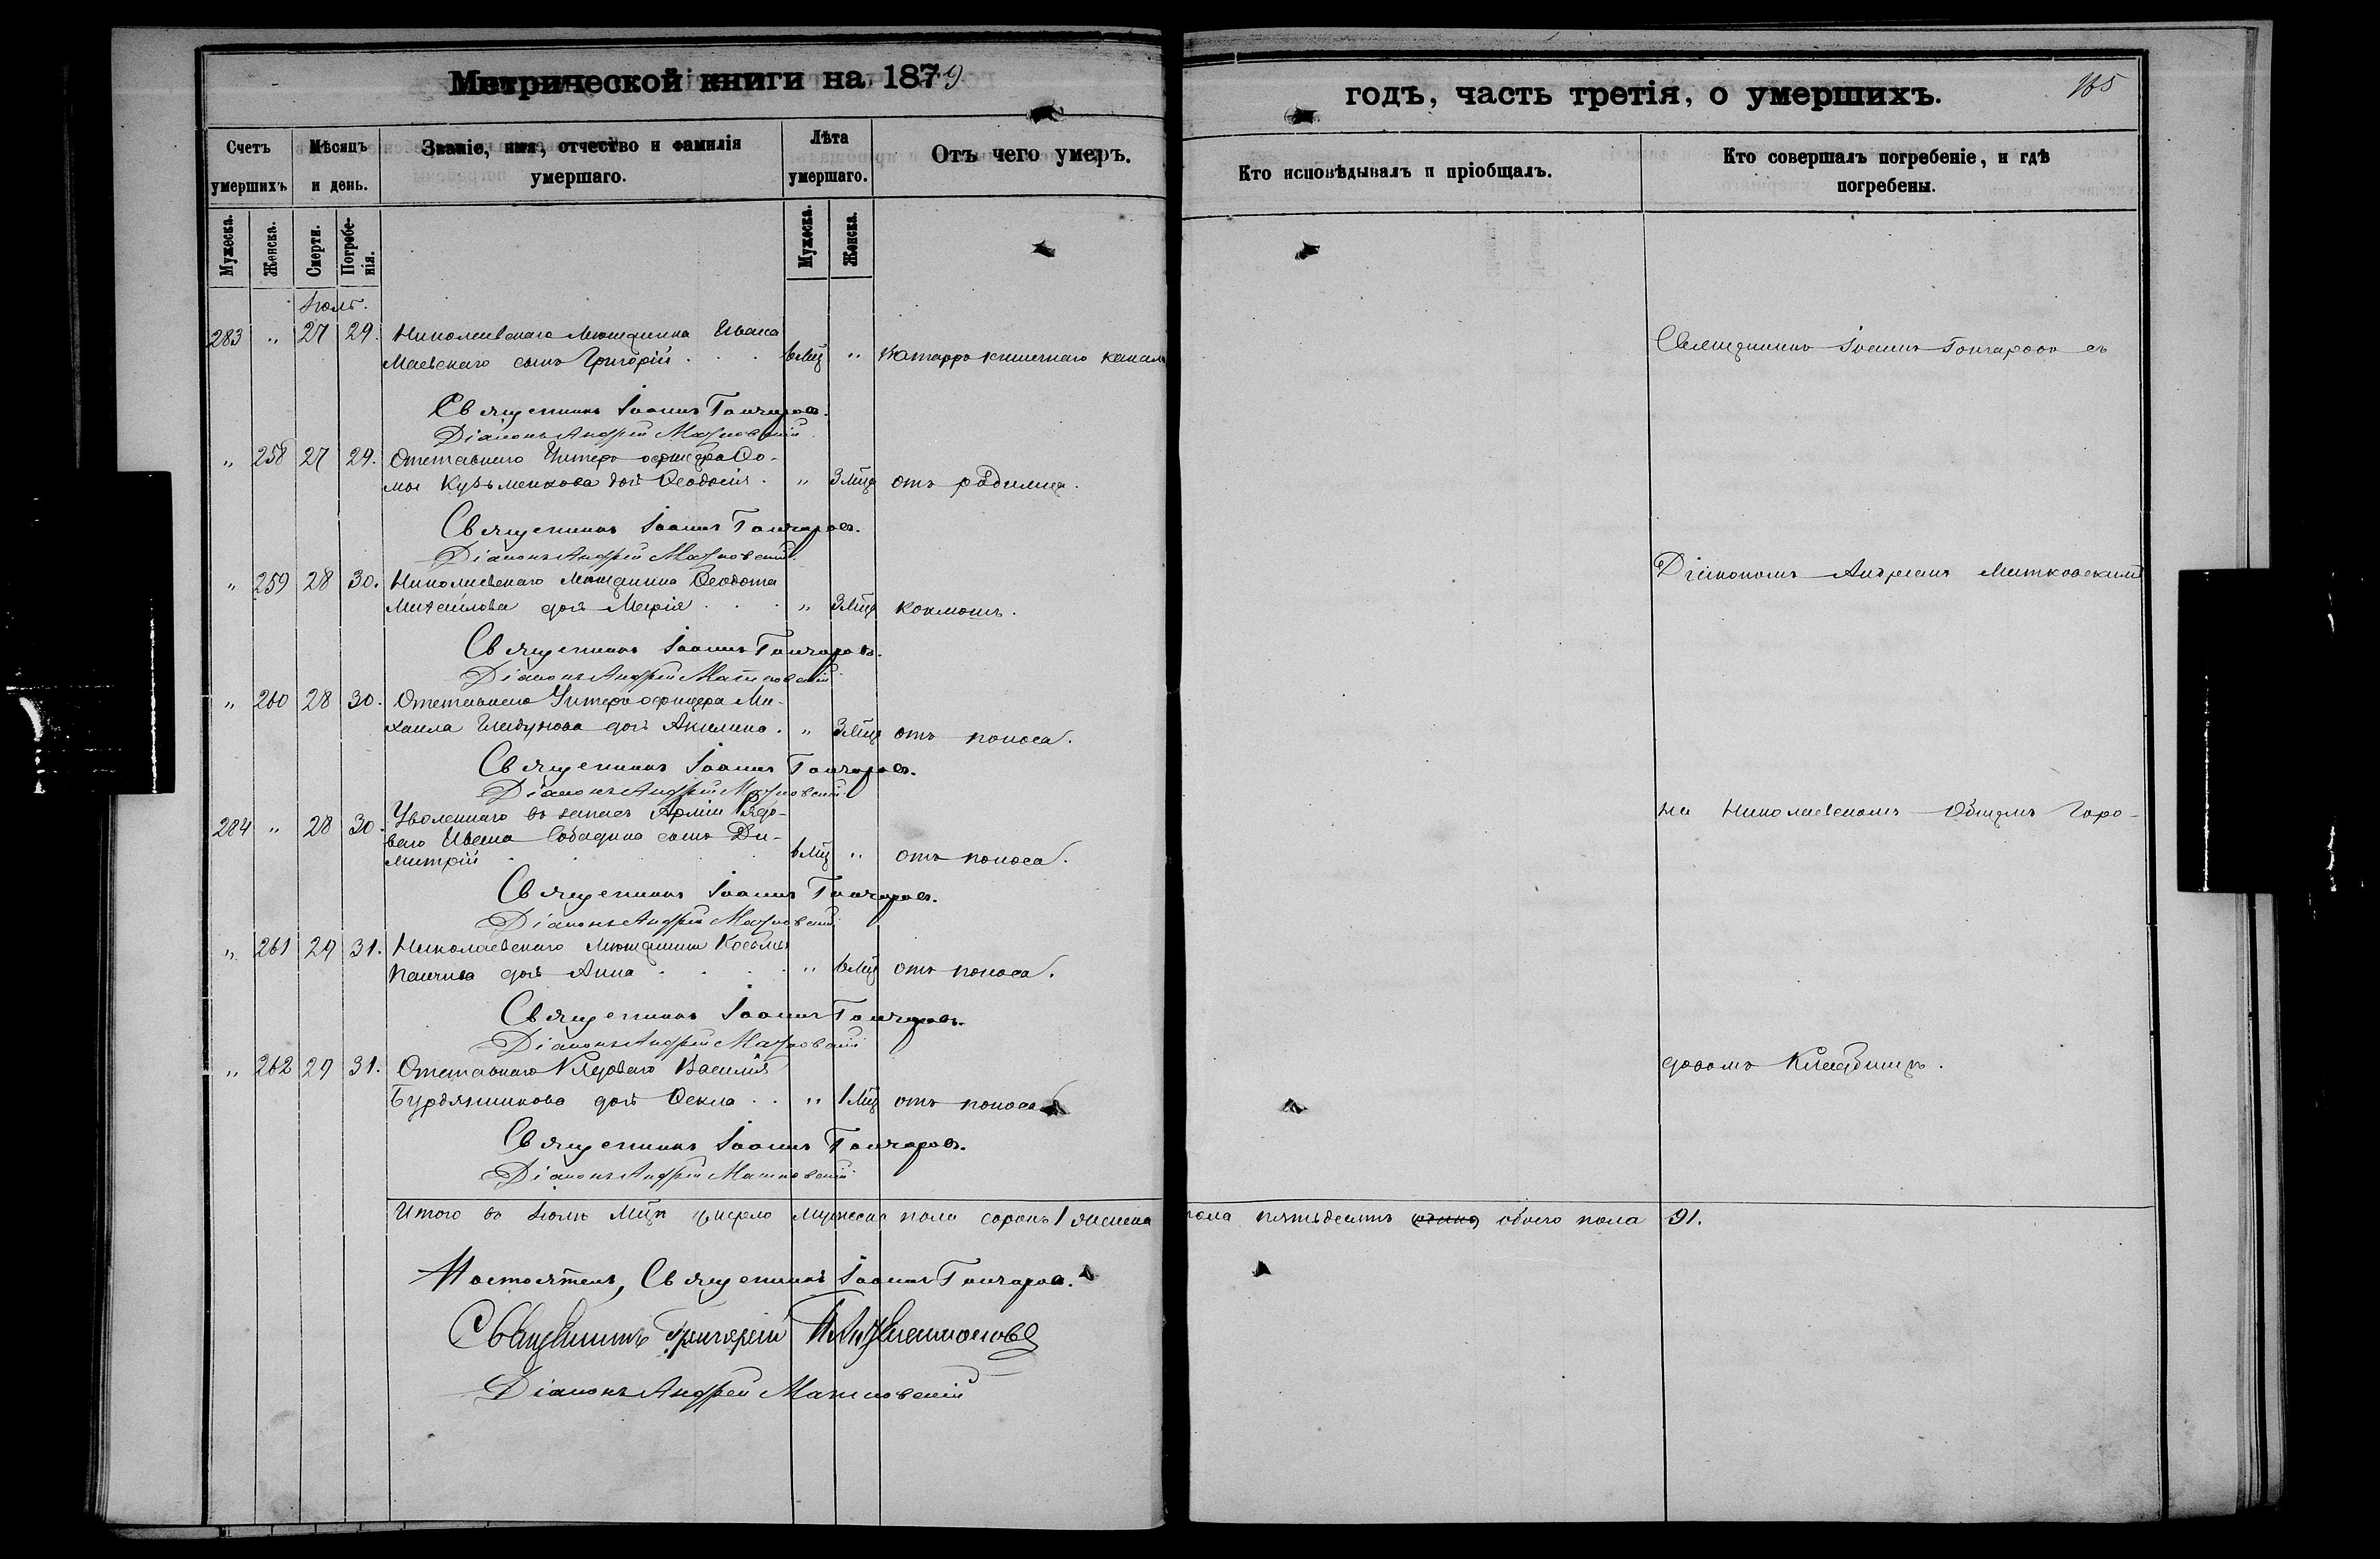 Метрической книги на 1879
годъ, часть третія, о умершихъ.
165
Счетъ умершихъ
Мѣсяцъ и день.
Званіе, имя, отчество и фамилія умершаго.
Лѣта умершаго.
Отъ чего умеръ.
Кто исповѣдывалъ и пріобщалъ.
Кто совершалъ погребеніе, и гдѣ погребены.
Мужеска.
Женска.
Смерти.
Погребенія.
Мужеска.
Женска.
Іюль.
283 " 27 29. Николаевскаго Мѣщанина Ивана
Маевскаго сынъ Григорій . . . 6 Мц " Катарръ кишечнаго канала
Священникъ Іоаннъ Гончаровъ съ
Священникъ Іоаннъ Гончаровъ.
Діаконъ Андрей Матковскій
" 258 27 29. Отставнаго Унтеръ офицера Ѳо-
мы Кузьменкова доч Ѳеодосія . " 3 Мца отъ родимца.
Священникъ Іоаннъ Гончаровъ.
Діаконъ Андрей Матковскій.
" 259 28 30. Николаевскаго Мѣщанина Ѳеодота
Михайлова доч Марія . . . " 3 Мца коклюшъ.
Діакономъ Андреемъ Матковскимъ
Священникъ Іоаннъ Гончаровъ.
Діаконъ Андрей Матковскій
" 260 28 30. Отставнаго Унтеръ офицера Ми-
хаила доч Акилина . " 3 Мца отъ поноса.
Священникъ Іоаннъ Гончаровъ.
Діаконъ Андрей Матковскій
284 " 28 30. Уволеннаго въ запасъ Арміи Рядо-
ваго Ивана сынъ Ди-
митрій . . . 6 Мц " отъ поноса.
на Николаевскомъ Общемъ Горо-
Священникъ Іоаннъ Гончаровъ.
Діаконъ Андрей Матковскій
" 261 29 31. Николаевскаго Мѣщанина Косьмы
доч Анна . . . . " 6 Мц отъ поноса.
Священникъ Іоаннъ Гончаровъ.
Діаконъ Андрей Матковскій
" 262 29 31. Отставнаго Рядоваго Василія
Бурдянникова доч Ѳекла . . " 1 Мц отъ поноса
довомъ Кладбищѣ.
Священникъ Іоаннъ Гончаровъ.
Діаконъ Андрей Матковскій
Итого въ Іюлѣ Мцѣ умерло мужеска пола сорокъ 1 женска пола пятьдесятъ обоего пола 91.
Настоятель, Священникъ Іоаннъ Гончаровъ.
Священникъ Григорій
Діаконъ Андрей Матковскій